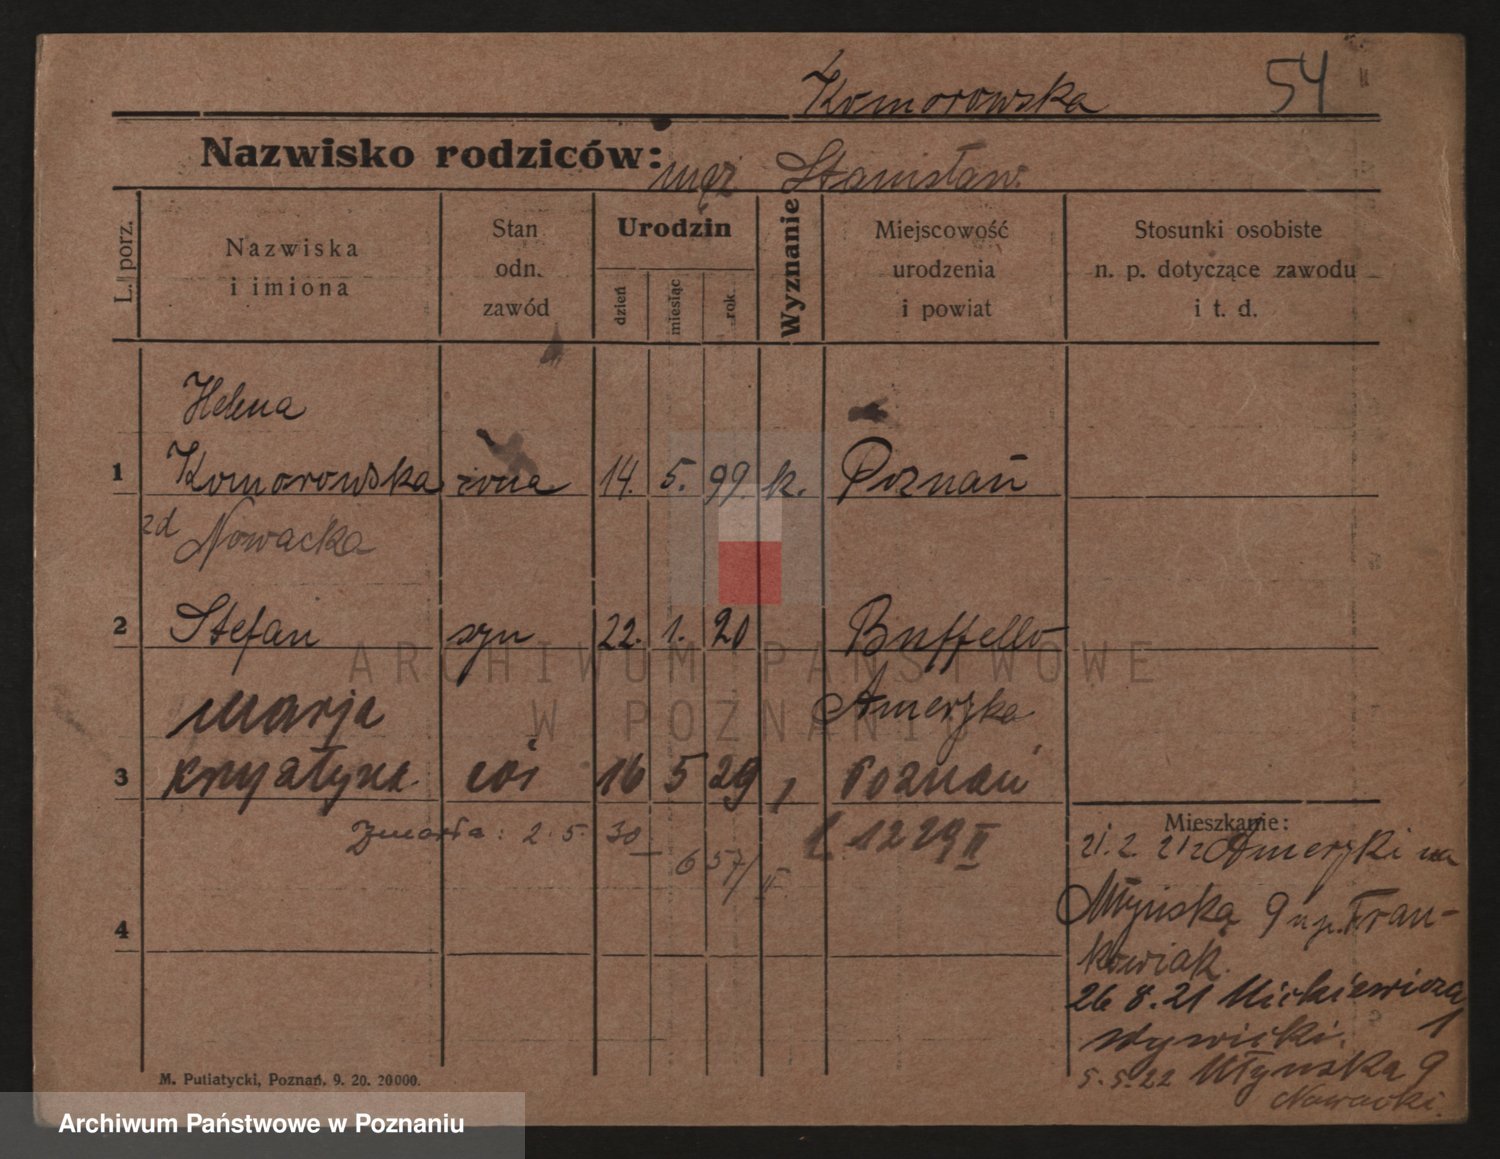 Komorowska 54
Nazwisko rodziców: mąż Stanisław.
L. porz.
Nazwiska
i imiona
Stan
odn.
zawód
Urodzin
dzień
miesiąc
rok
Wyznanie
Miejscowość
urodzenia
i powiat
Stosunki osobiste
n. p. dotyczące zawodu
i t. d.
Helena
1 Komorowska żona 14. 5. 99. k. Poznań
zd Nowacka
2 Stefan syn 22. 1. 20 Buffello
Ameryka
Marja
3 Krystyna córka 16 5 29 Poznań
Zmarła: 2. 5. 30
657/II
1229 II
4
Mieszkanie:
21. 2. 21 z Ameryki na
Młyńską 9 up. Fran-
kowiak.
26 8. 21 Mickiewicza
1
5. 5. 22 Młyńska 9
Nowacki.
M. Putiatycki, Poznań. 9. 20. 20000.
ARCHIWUM PAŃSTWOWE
W POZNANIU
Archiwum Państwowe w Poznaniu